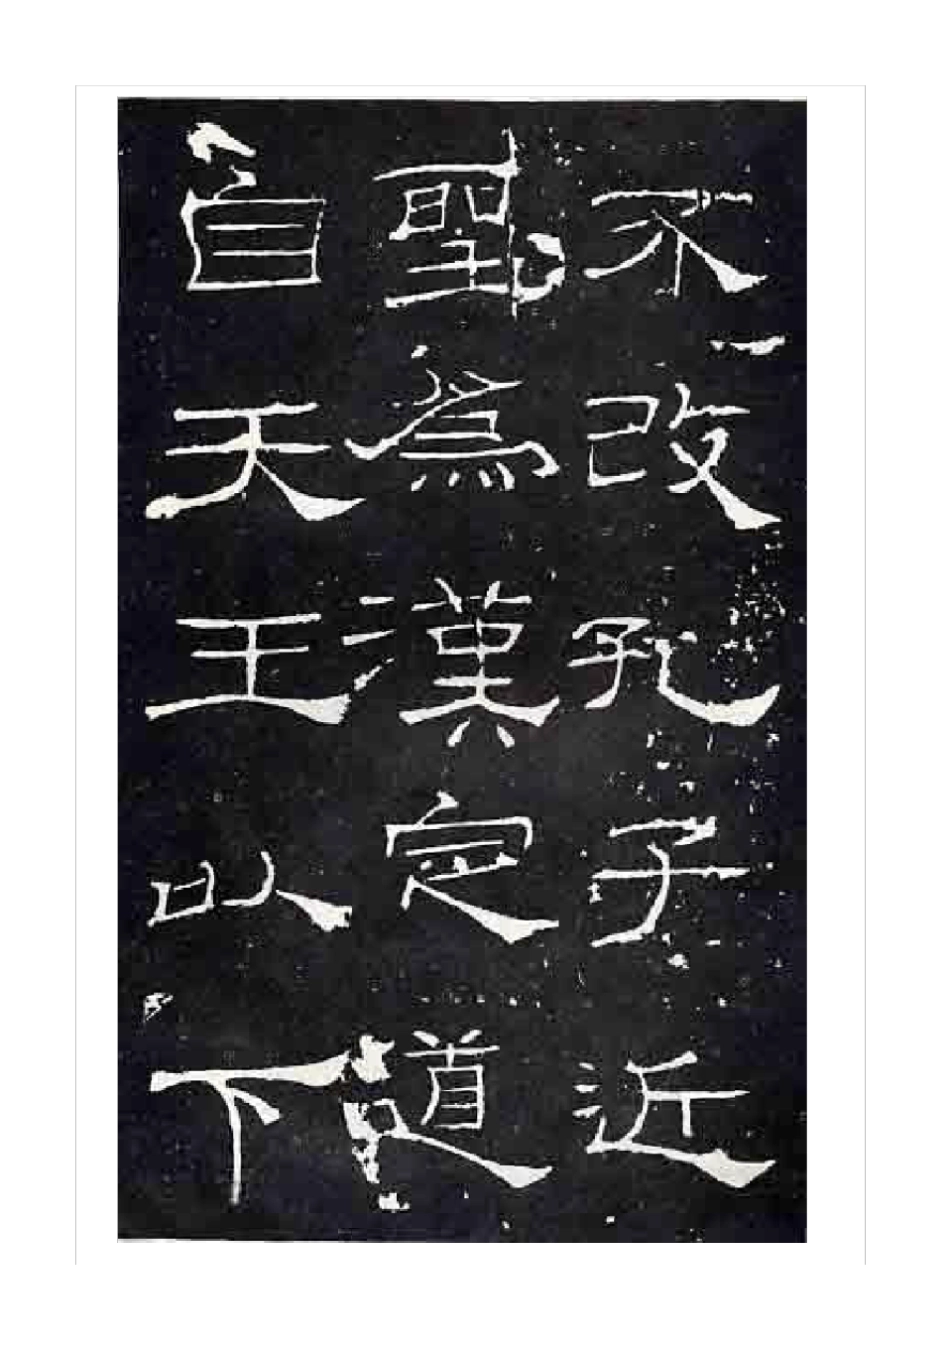 不改孔子近
聖為漢定道
自天王以下